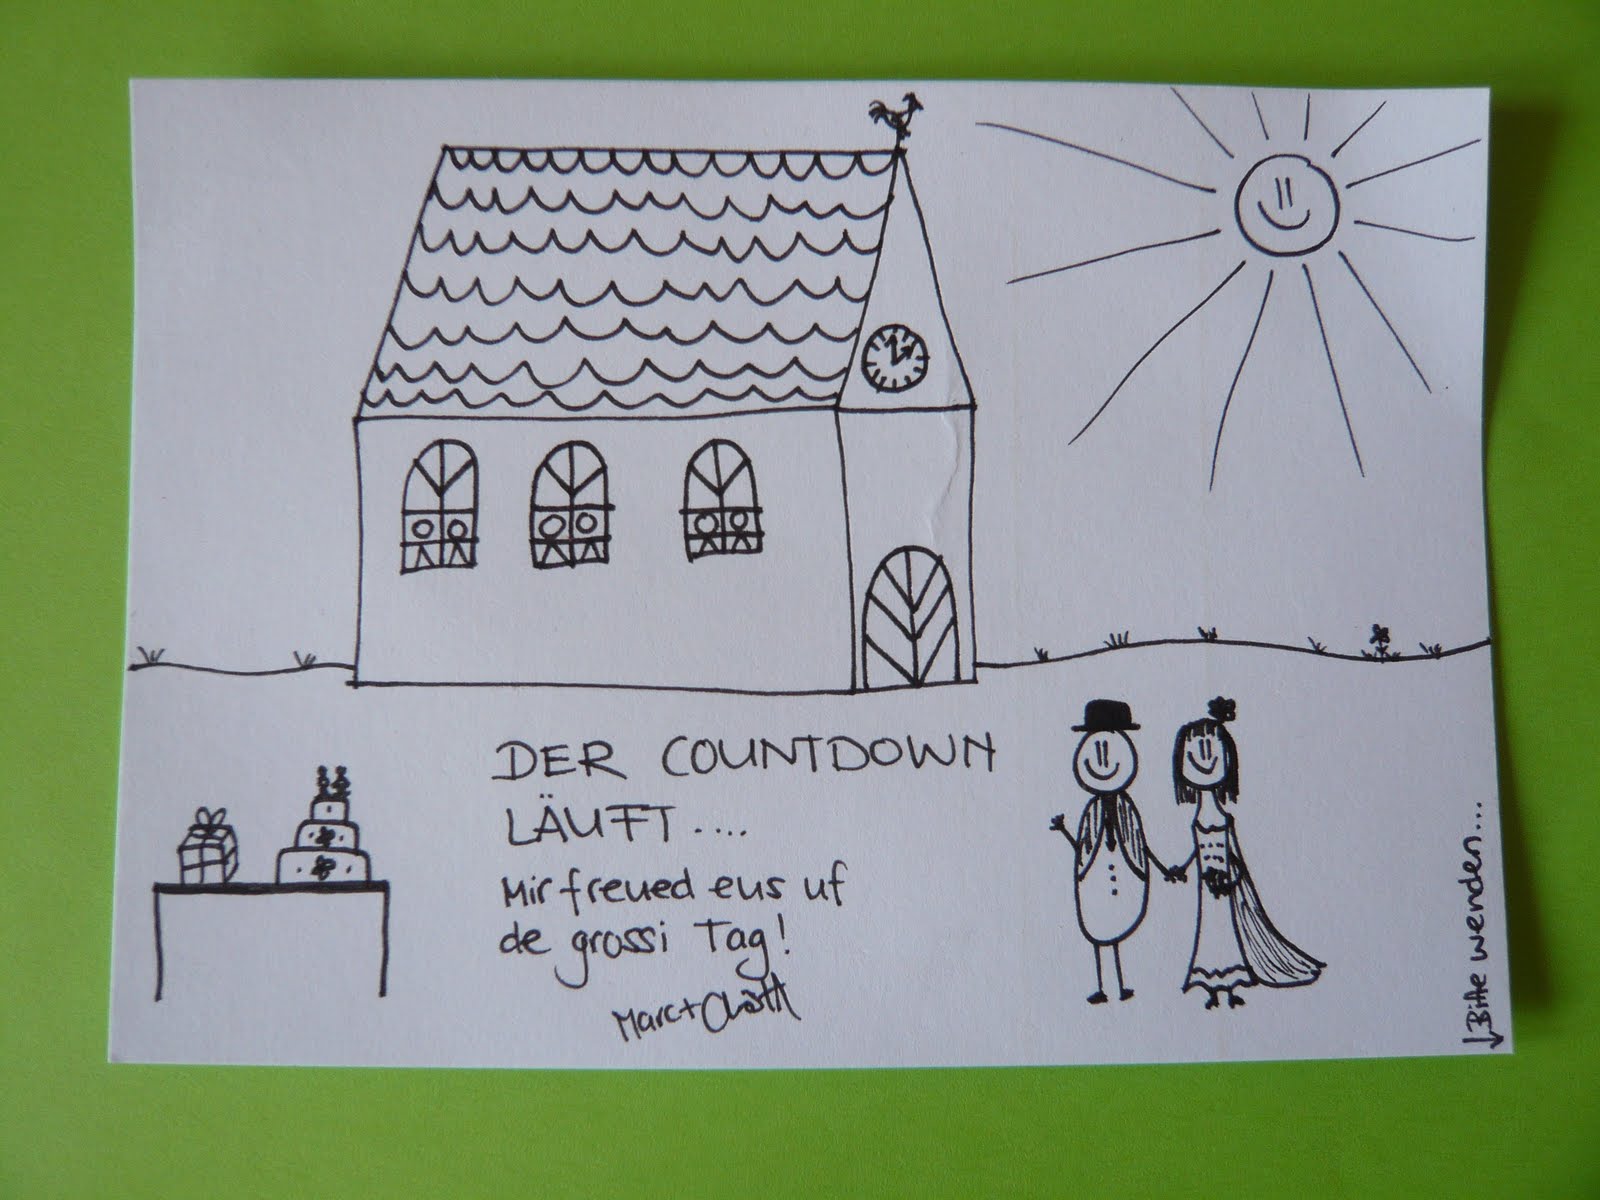 DER COUNTDOWN
LÄUFT....
Mir freued eus uf
de grossi Tag!
Marc +
Bitte wenden...